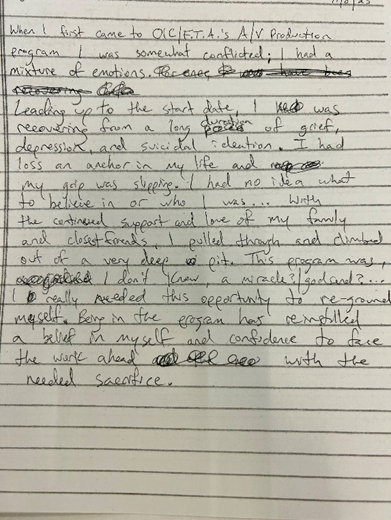 When I first came to OIC/E.T.A.'s A/V Production
program I was somewhat conflicted; I had a
mixture of emotions.
Leading up to the start date, I was
recovering from a long duration of grief,
depression, and suicidal ideation. I had
loss an anchor in my life and
my grip was slipping. I had no idea what
to believe in or who I was... With
the continued support and love of my family
and closest friends, I pulled through and climbed
out of a very deep pit. This program was,
I don't know, a miracle?/godsend?...
I really needed this opportunity to re-ground
myself. Being in the program has reinstilled
a belief in myself and confidence to face
the work ahead with the
needed sacrifice.